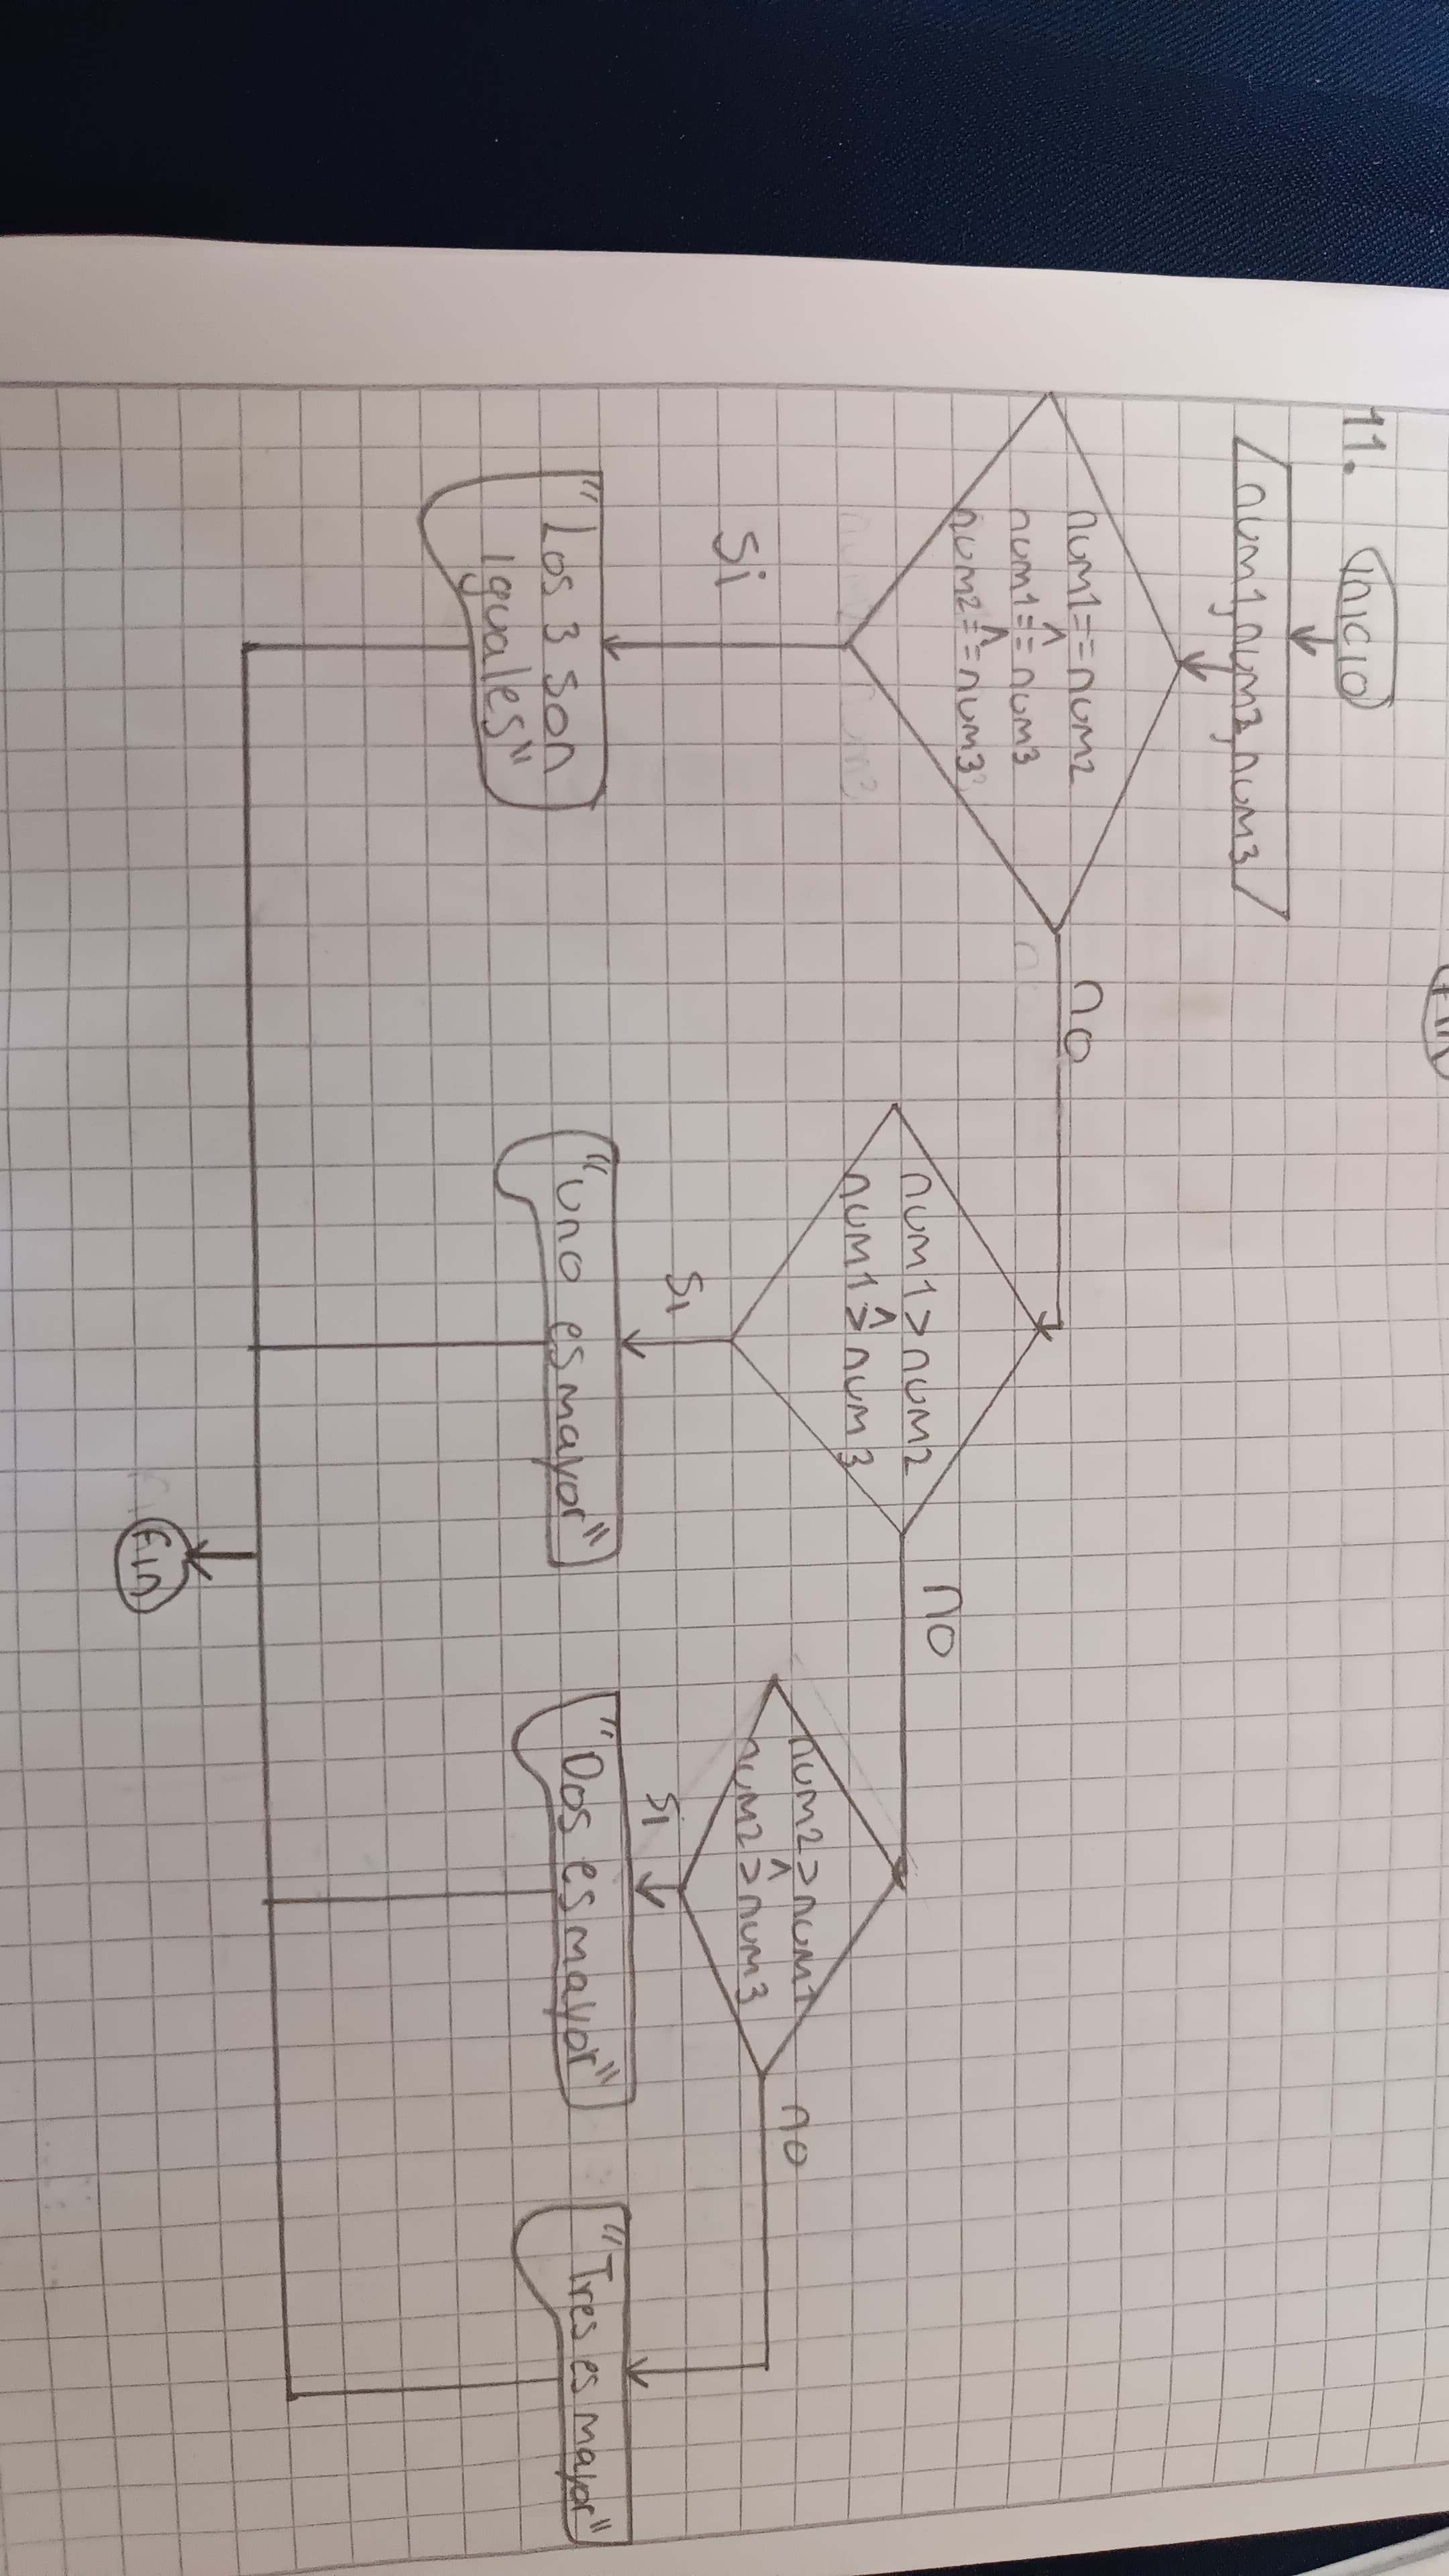 11.
Inicio
num1,num2,num3
num1==num2
^
num1==num3
^
num2==num3
no
Si
"Los 3 son
iguales"
num1>num2
^
num1>num3
no
Si
"uno es mayor"
num2>num1
^
num2>num3
no
Si
"Dos es mayor"
"Tres es mayor"
Fin